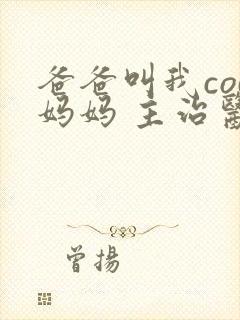 爸爸叫我co
妈妈 主治
曾揚